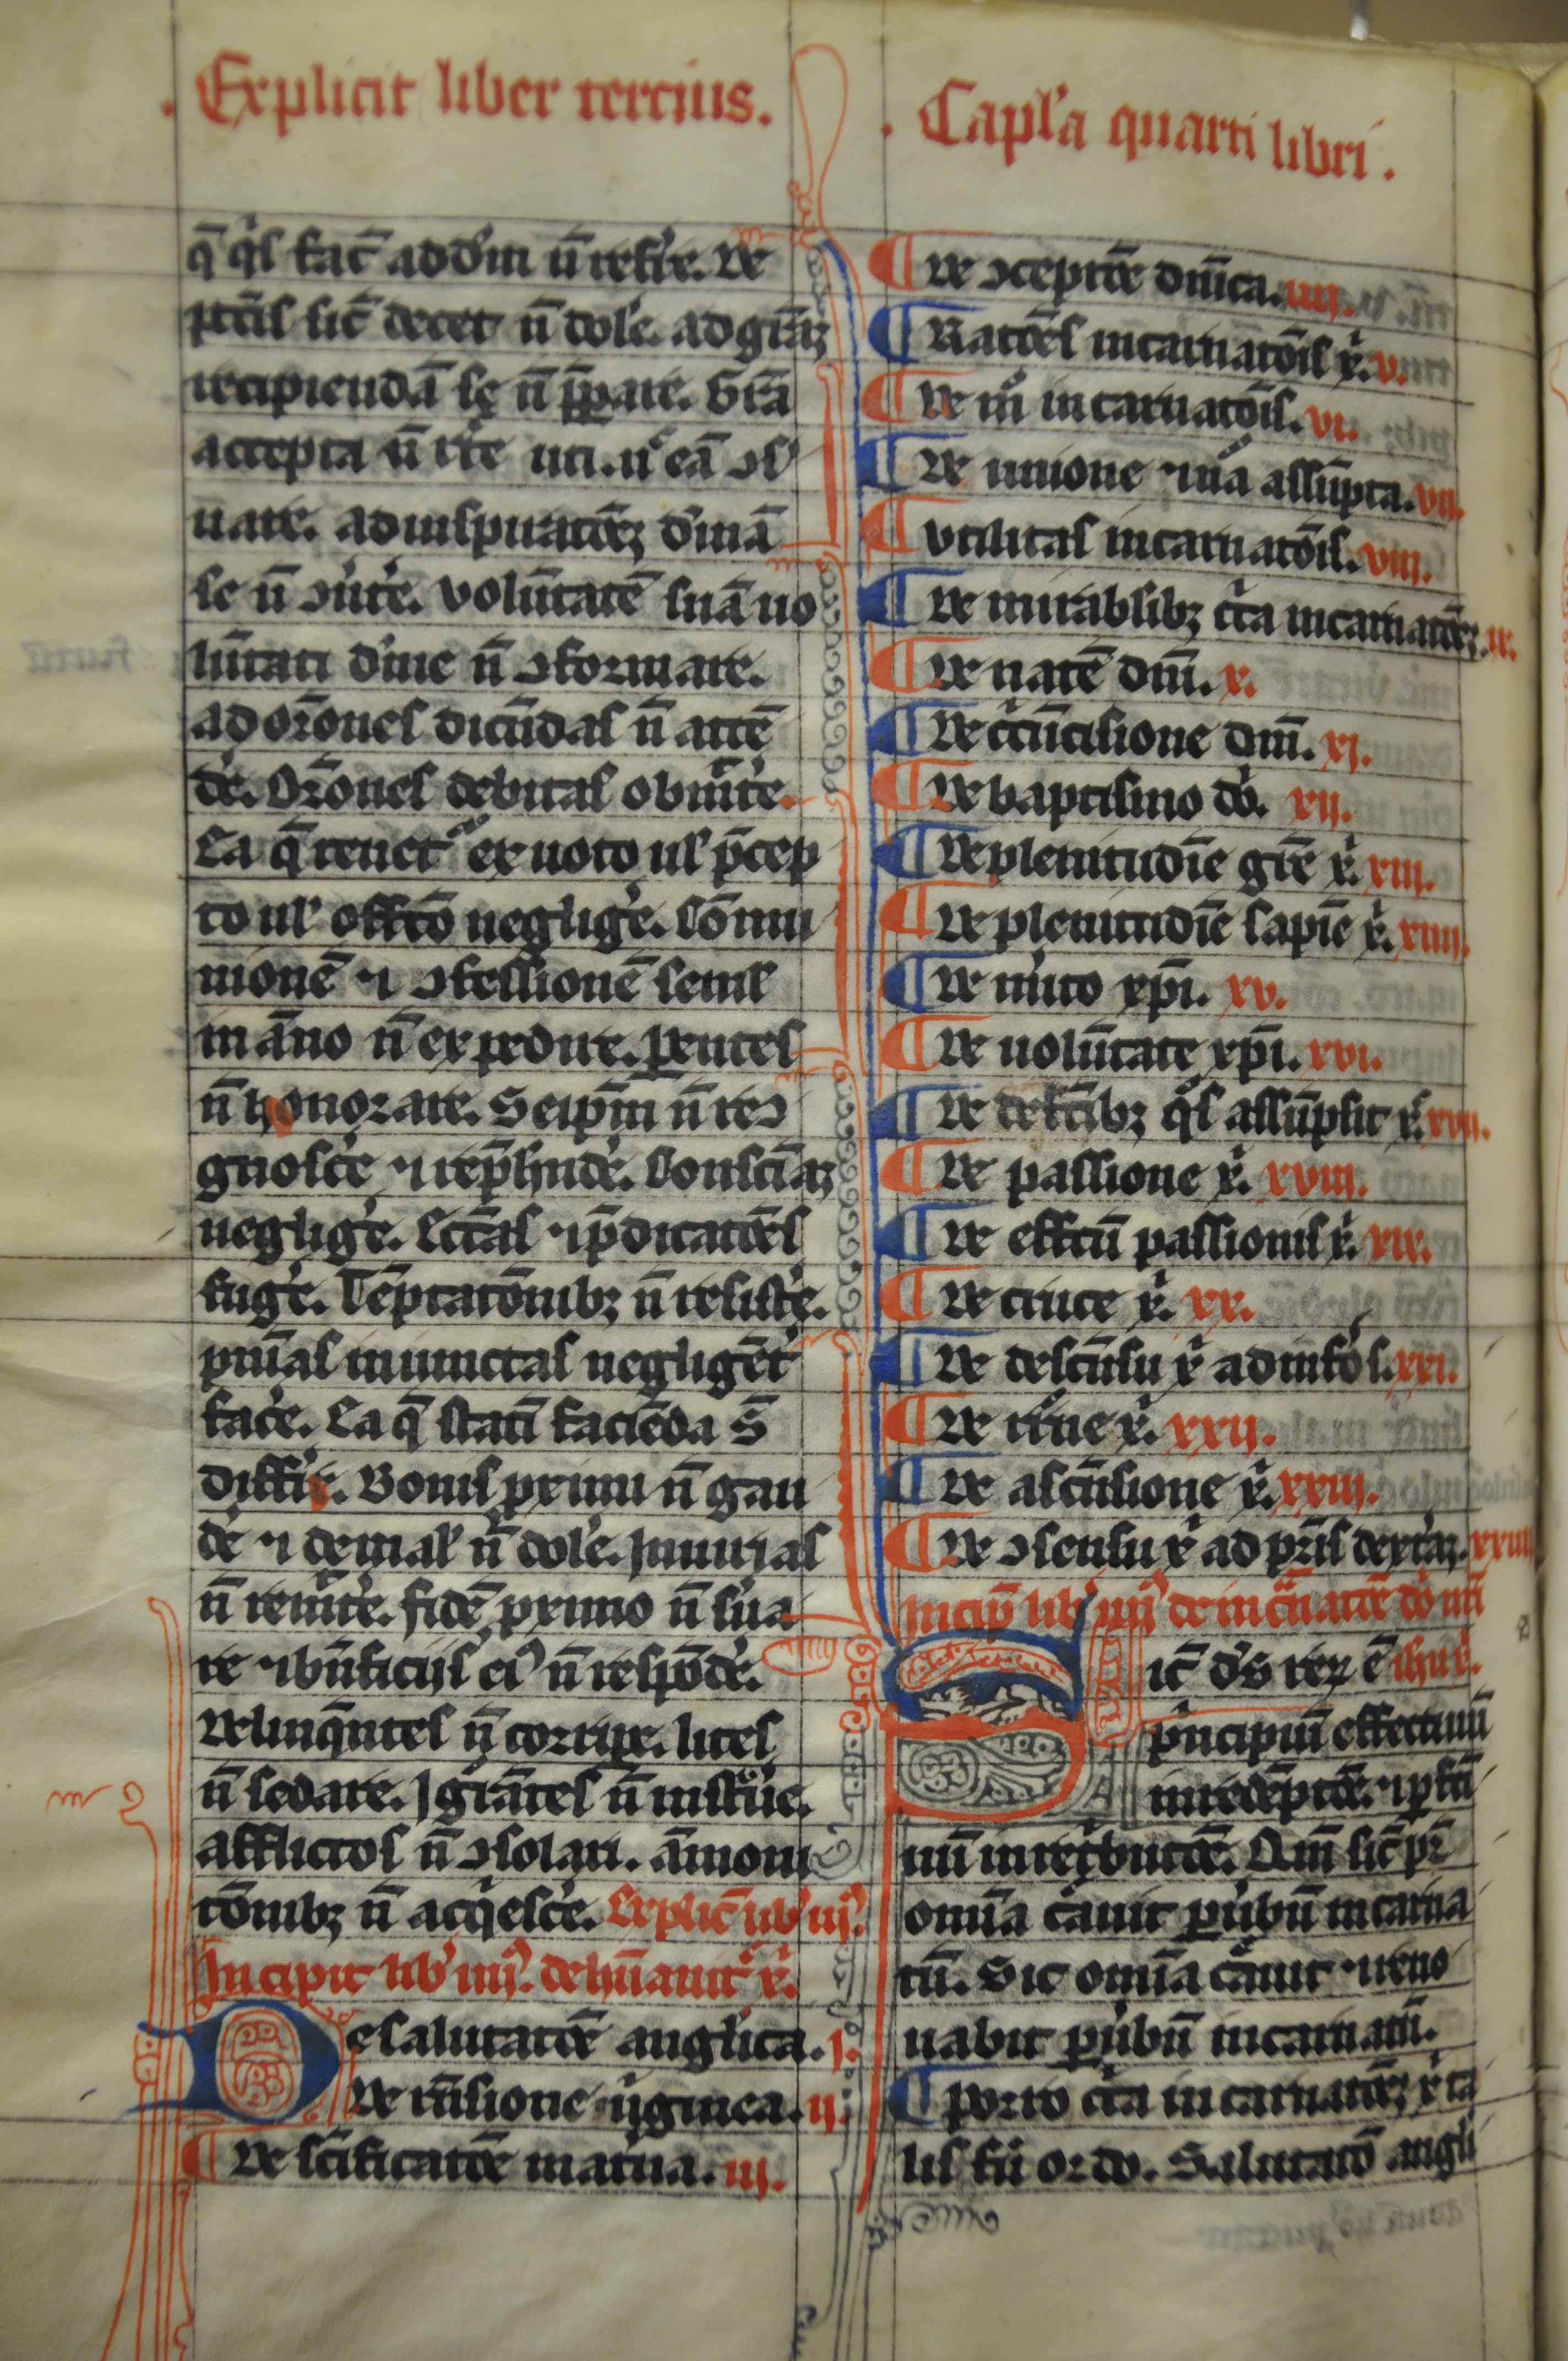 . Explicit liber tercius.
q̄ q̇s fac̄ ad dm̄ n̄ refẽ. De
pctīs sic̄ decet n̄ dole. ad grāꝫ
recipiendā se n̄ ꝑꝑare. Grā
accepta n̄ rte uti. uͦ eā ɔs
uare. ad inspiratōeꝫ diuinā
se n̄ ɔu̇te. voluntatē suā uo
lūtati diuie n̄ ɔformare.
ad orōnes dicēdas n̄ attē
de. Orōnes debitas obmit̄te.
Ea q̄ tenet᷑ ex uoto ul p̄cep
to ul offīco neglige. Cōmu
nionē ⁊ ɔfessionē semel
in āno n̄ expedire. ꝑentes
n̄ honorare. Seipm̄ n̄ reɔ
gnosce ⁊ rep̄hnde. Consciāꝫ
neglige. Ecclās ⁊ p̄dicatōes
fuge. Tēptatōnibꝫ n̄ resiste.
pnīas iniunctas negligēt᷑
face. Ea q̄ stati faciēda s̄
differre. Bonis primi n̄ gau
de ⁊ de mal n̄ dole. Iniurias
n̄ remit̄te. fidē proximo n̄ s̄ua
re ⁊ bn̄ficiis eiꝰ n̄ respōde.
Delinq̄ntes n̄ corripe. lites
n̄ sedare. Ignrātes n̄ instrue.
afflictos n̄ ɔsolari. āmoni
tōnibꝫ n̄ acq̇esce. Explic̄ lib iijꝰ.
Incipit lib iiijꝰ. de hūanit᷑ x̄.
De salutatōe anglica. j.
De mīsione uginea. ij.
De scīficatōe mat̄na. iij.
. Capl'a quarti libri .
De ɔceptōe dnīca. iiij.
Ratōes incarnatōis x̄. v.
De mͦ incarnatōis. vi.
De unione ⁊ nā assūpta. vii.
vtilitas incarnatōis. viii.
De mirabilibꝫ c̄ca incarnatōeꝫ. ix.
De natē dnī. x.
De c̄cūcisione dnī. xi.
De baptismo do. xij.
De plenitudīe grē x̄. xiii.
De plenitudīe sapīe x̄. xiiii.
De m̄ito xp̄i. xv.
De volūtate xp̄i. xvi.
De defctībꝫ q̊s assūpsit x̄. xvii.
De passione x̄. xviii.
De effctū passionis x̄. xix.
De cruce x̄. xx.
De descensu x̄ ad infos. xxi.
De rsrue x̄. xxij.
De ascēsione x̄. xxiii.
De ɔsensu x̄ ad prīs dextāꝫ. xxiiii
Incip lib iiijꝰ de incarnatōe do nri
Sic̄ ds rex ē ihu x̄.
p̄ncipiū effectiuū
in redēptōe. ⁊ ꝑfcti
uū in ret̄butōe. Qm̄ sic̄ pr̄
omīa c̄auit ꝑ ūbū incarna
tū. Sic omīa c̄auit ⁊ reno
uabit ꝑ ūbū incarnatū.
Porro c̄ca incarnatōeꝫ x̄ ta
lis fuit ordo. Salutatō angli